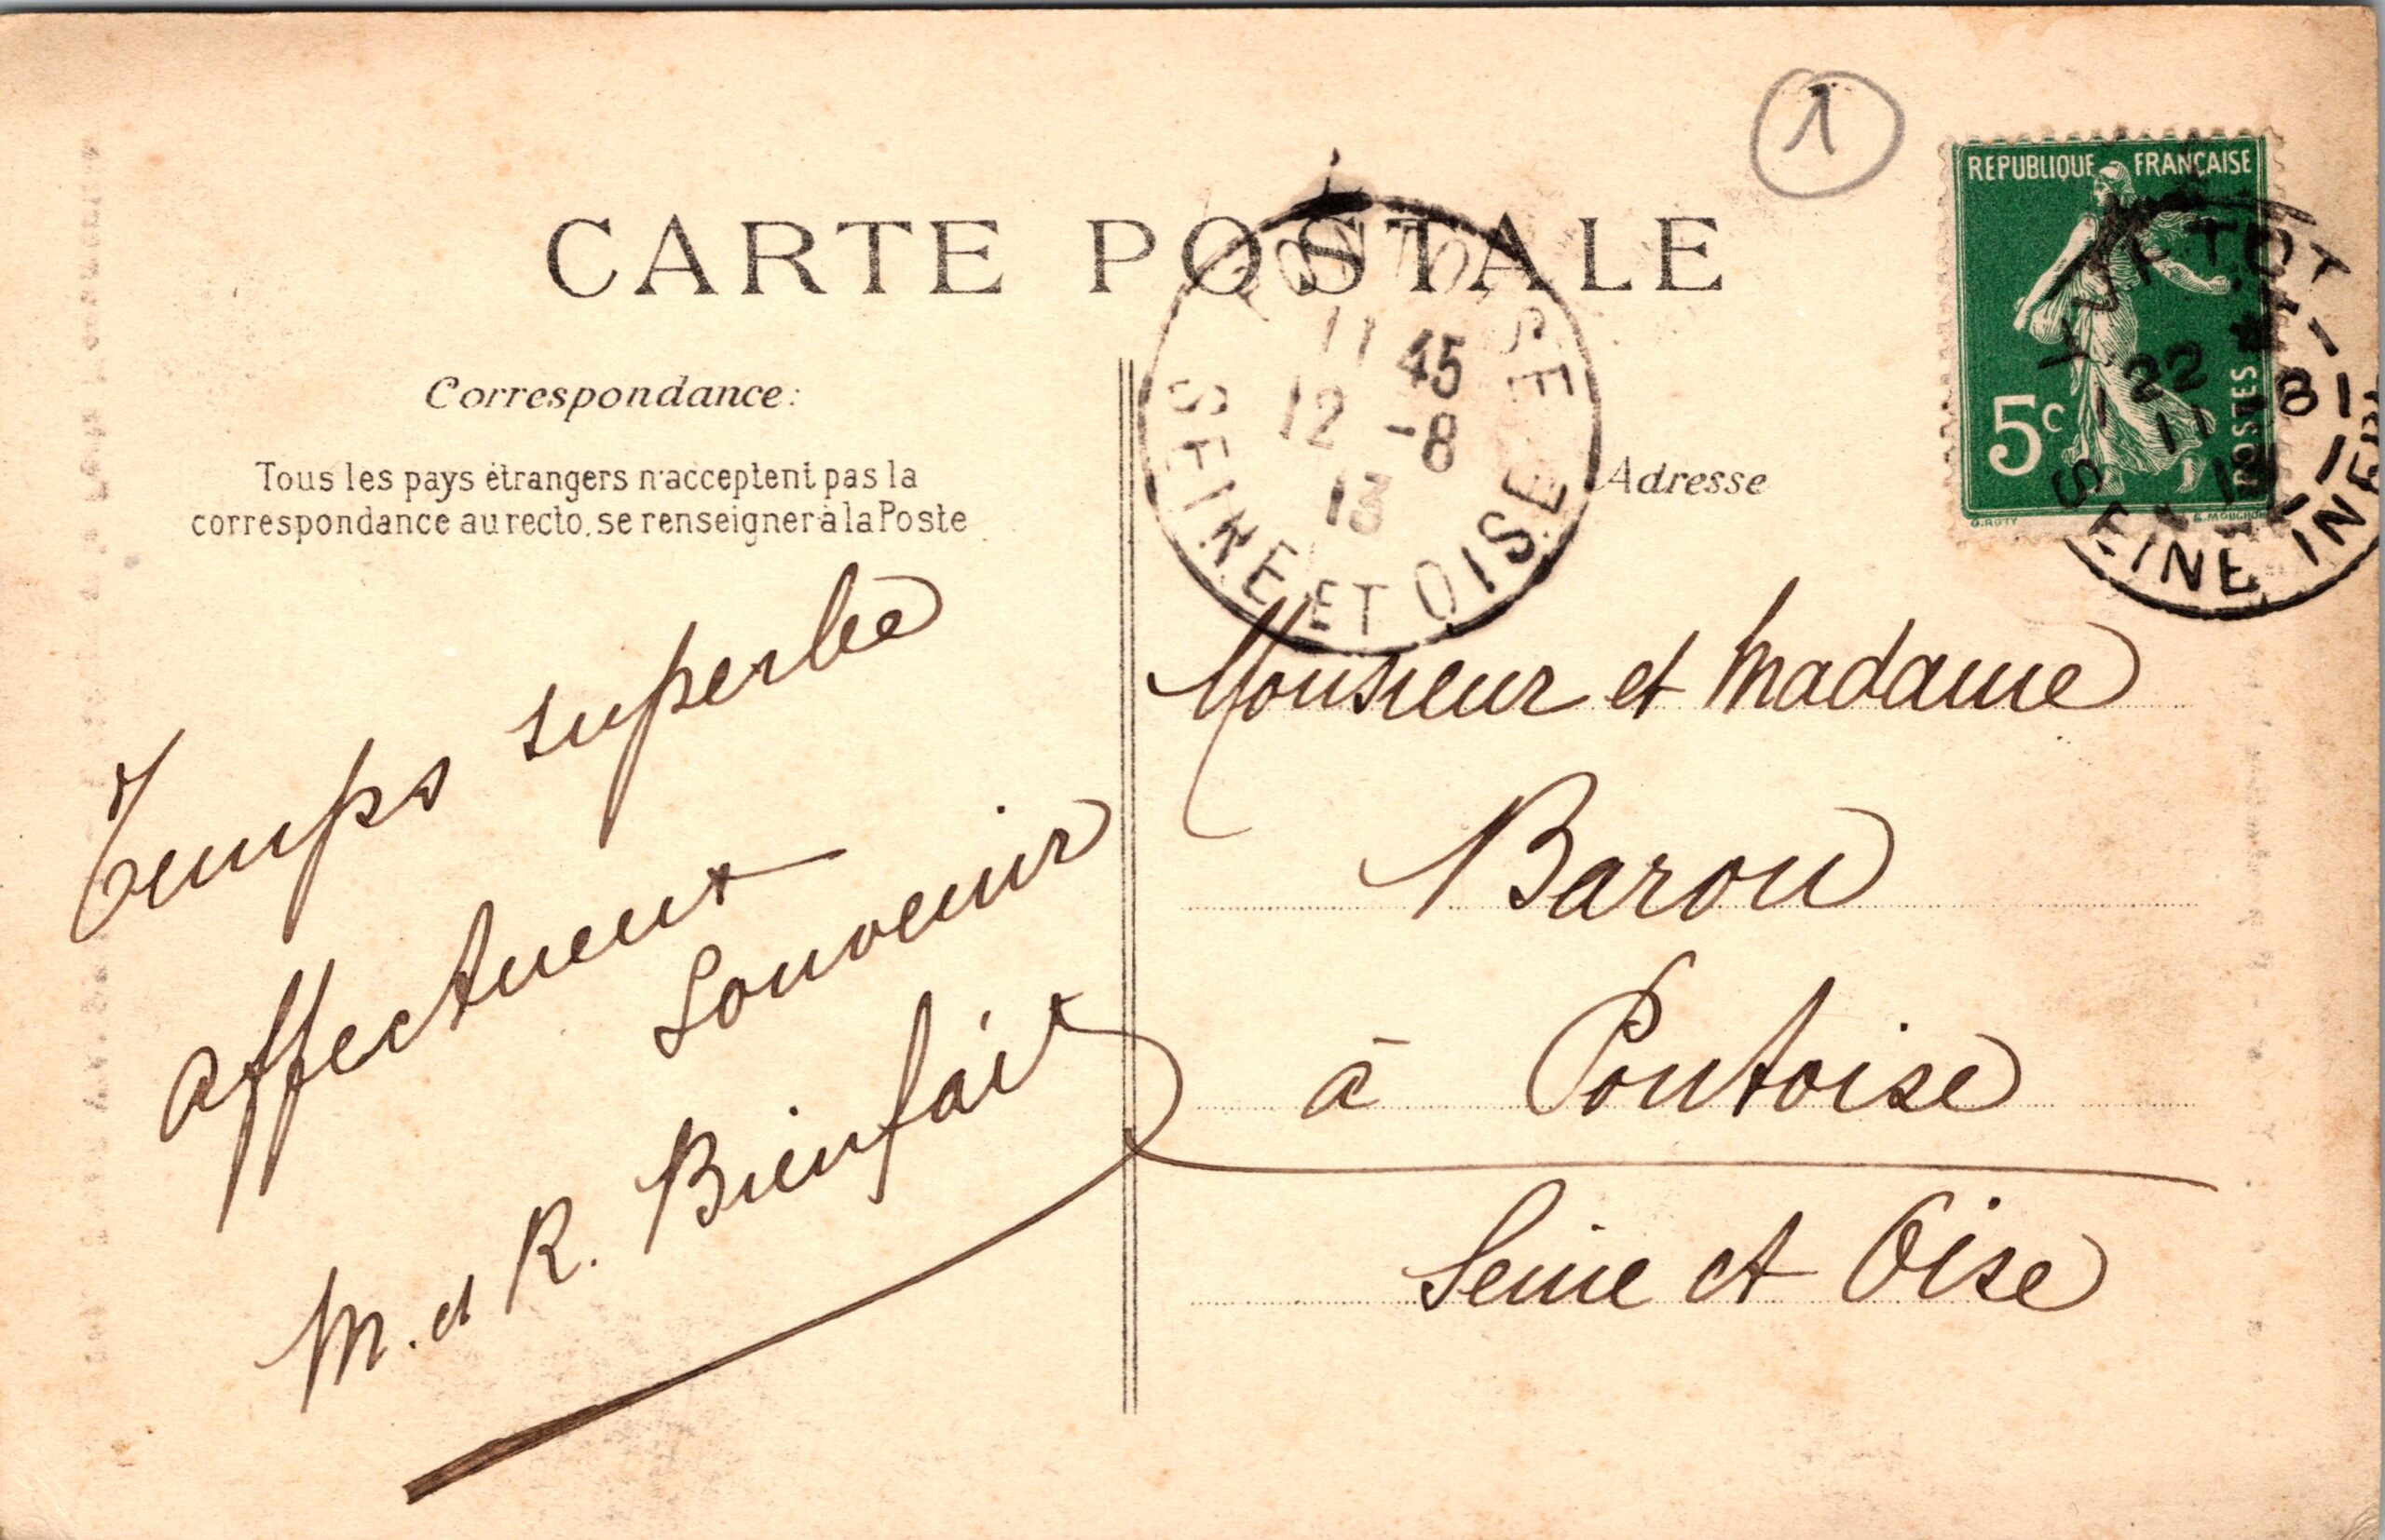 1
CARTE POSTALE
REPUBLIQUE FRANÇAISE
5c
POSTES
O. ROTY
E. MOUCHON
YVETOT
22
11 - 8
13
SEINE INFRE
PONTOISE
11 45
12 - 8
13
SEINE ET OISE
Correspondance:
Tous les pays étrangers n'acceptent pas la
correspondance au recto, se renseigner à la Poste
Adresse
Temps superbe
affectueux
souvenir
M. et R. Bienfait
Monsieur et Madame
Baron
à Pontoise
Seine et Oise